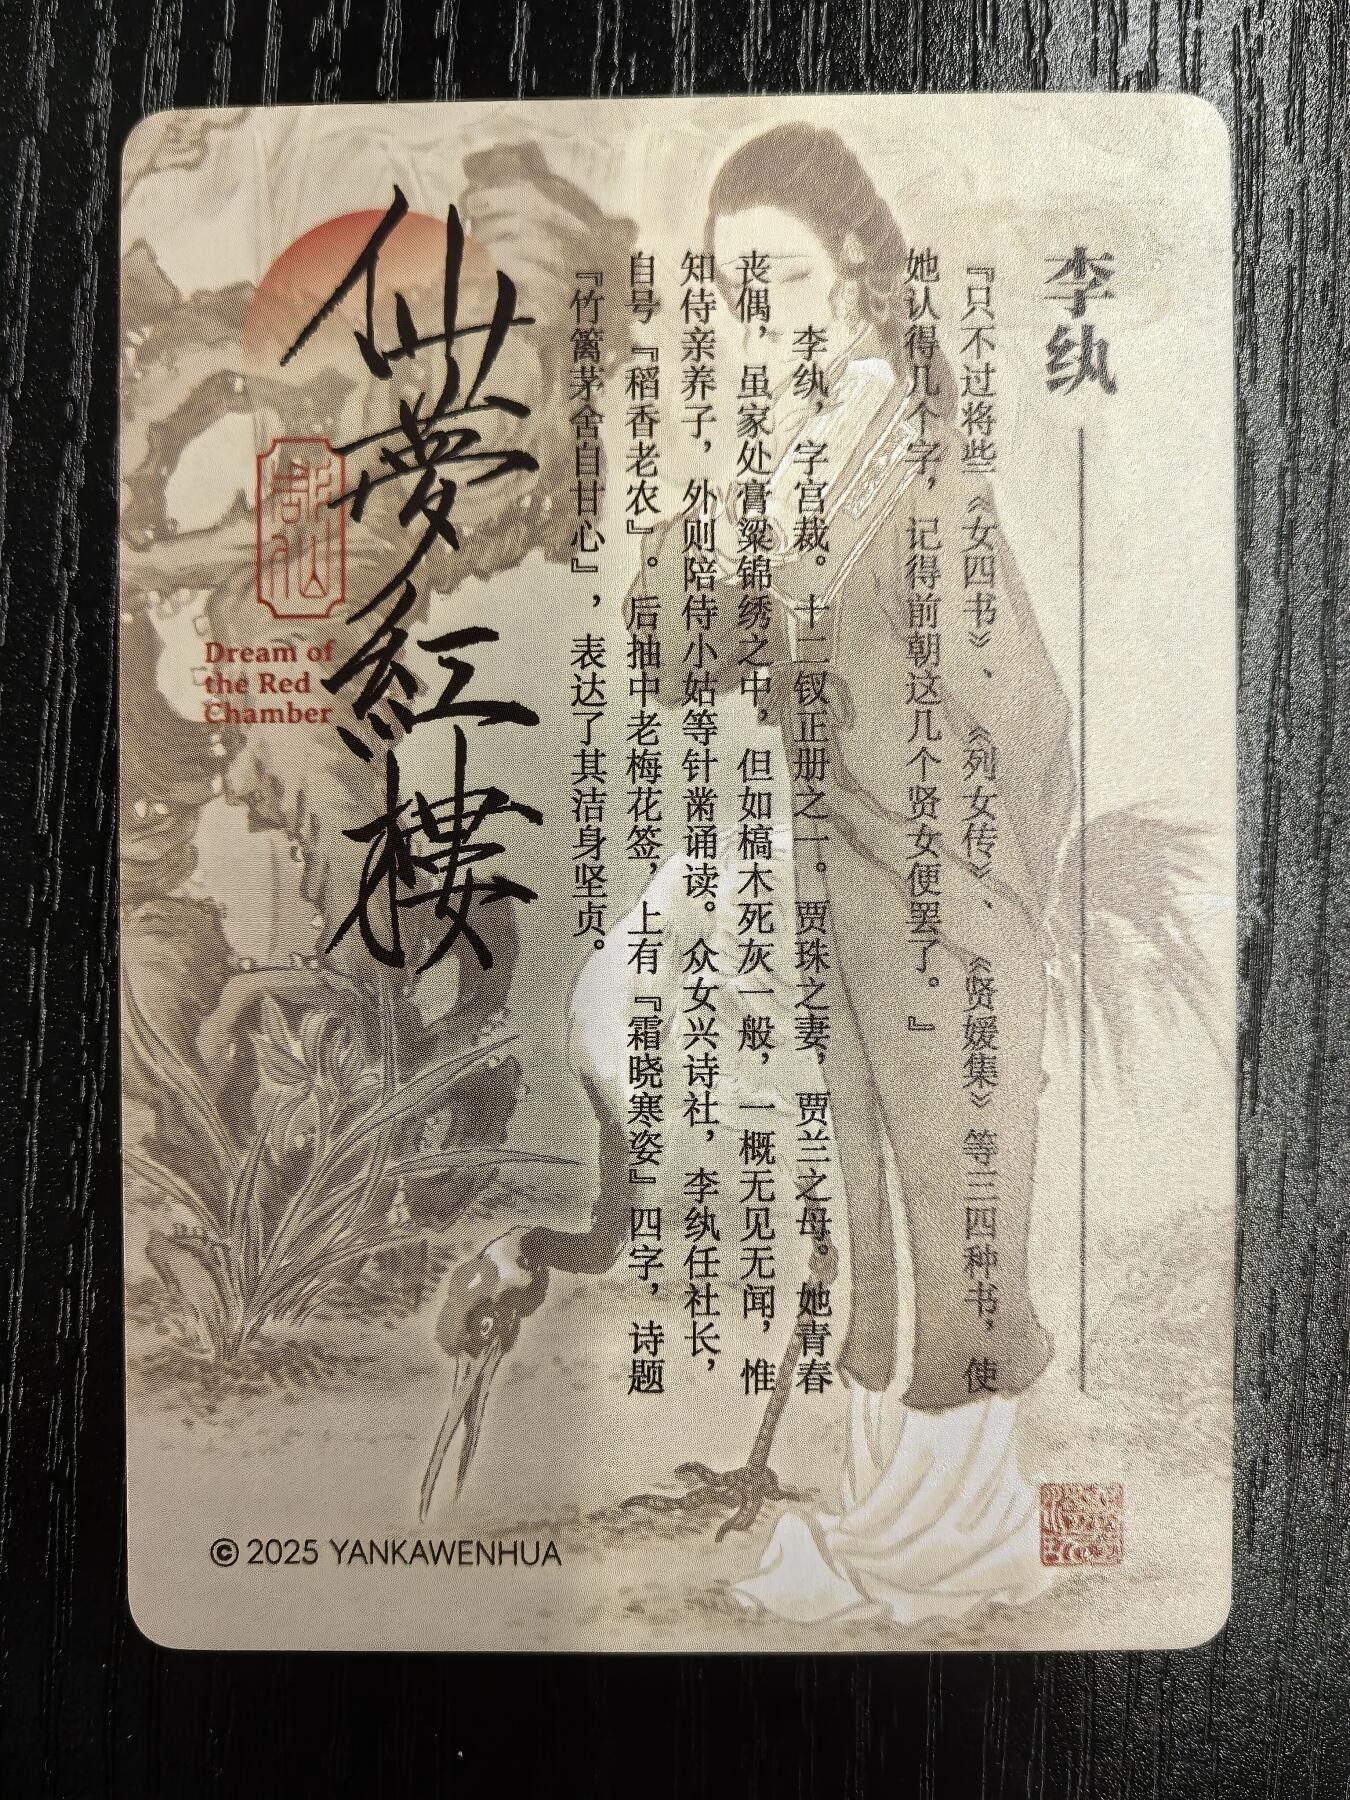 李纨
『只不过将些《女四书》、《列女传》、《贤媛集》等三四种书，使
她认得几个字，记得前朝这几个贤女便罢了。』
李纨，字宫裁。十二钗正册之一。贾珠之妻，贾兰之母。她青春
丧偶，虽家处膏粱锦绣之中，但如槁木死灰一般，一概无见无闻，惟
知侍亲养子，外则陪侍小姑等针黹诵读。众女兴诗社，李纨任社长，
自号『稻香老农』。后抽中老梅花签，上有『霜晓寒姿』四字，诗题
『竹篱茅舍自甘心』，表达了其洁身坚贞。
仙夢紅樓
Dream of
the Red
Chamber
© 2025 YANKAWENHUA